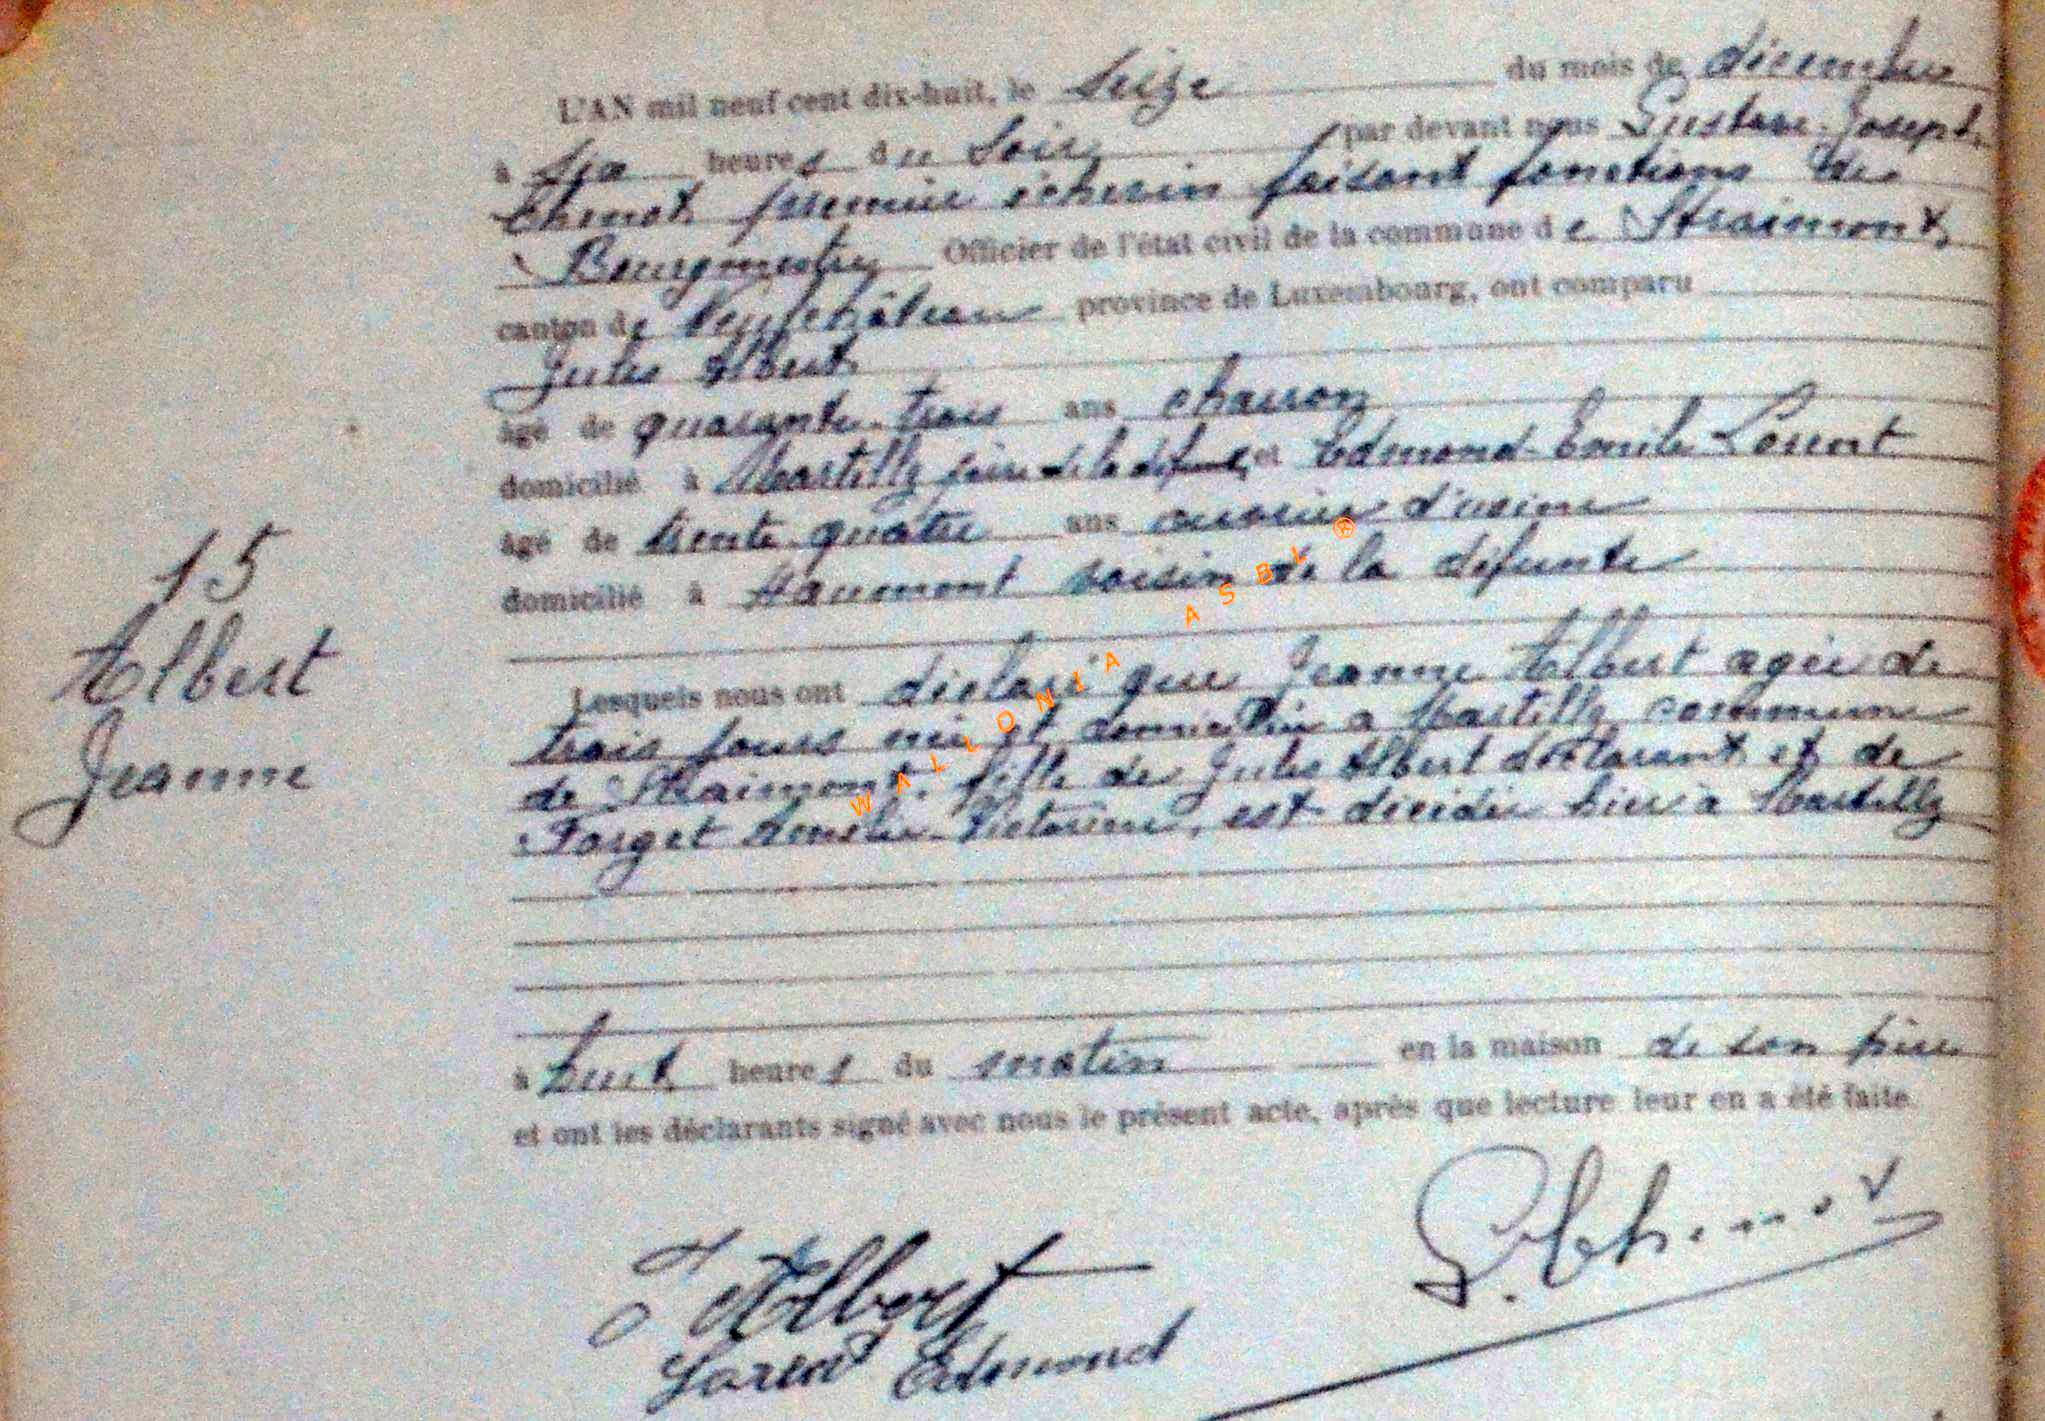 L'AN mil neuf cent dix-huit, le Seize du mois de décembre
à six heures du soir par devant nous Gustave-Joseph
Thenot premier échevin faisant fonctions de
Bourgmestre Officier de l'état civil de la commune de Straimont
canton de Neufchâteau province de Luxembourg, ont comparu
Jules Albert
âgé de quarante-trois ans charron
domicilié à Martilly père de la défunte et Edmond-Emile
âgé de trente-quatre ans ouvrier d'usine
domicilié à voisin de la défunte
15
Albert
Jeanne
Lesquels nous ont déclaré que Jeanne Albert agée de
trois jours née et domiciliée a Martilly commune
de Straimont, fille de Jules Albert déclarant et de
Forget Amélie-Victorine, est décédée hier à Martilly
à huit heures du matin en la maison de son père
et ont les déclarants signé avec nous le présent acte, après que lecture leur en a été faite.
Albert
Edmond
G. Thenot
WALLONIA ASBL ®